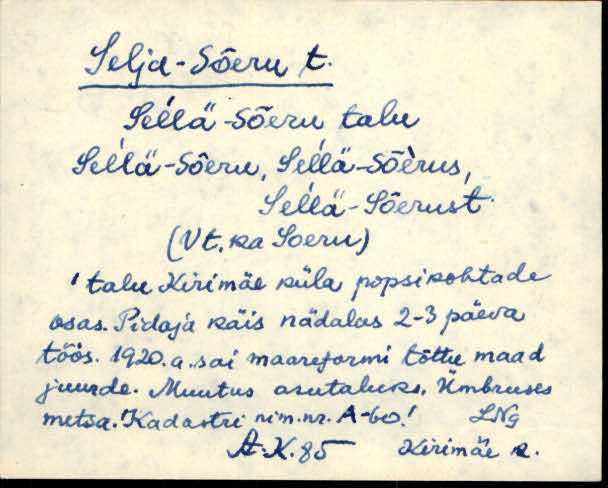 Selja-Sõeru t.
Sel̕l̕ä-Sõeru talu
Sel̕l̕ä-Sõeru, Sel̕l̕ä-Sõèrus,
Sel̕l̕ä-Sõerust
(Vt. ka Soeru)
'talu Kirimäe küla popsikohtade
osas. Pidaja käis nädalas 2-3 päeva
töös. 1920.a. sai maareformi tõttu maad
juurde. Muutus asutaluks. Ümbruses
metsa.' Kadastri nim.nr. A-60!  LNg
A.K.85  Kirimäe k.